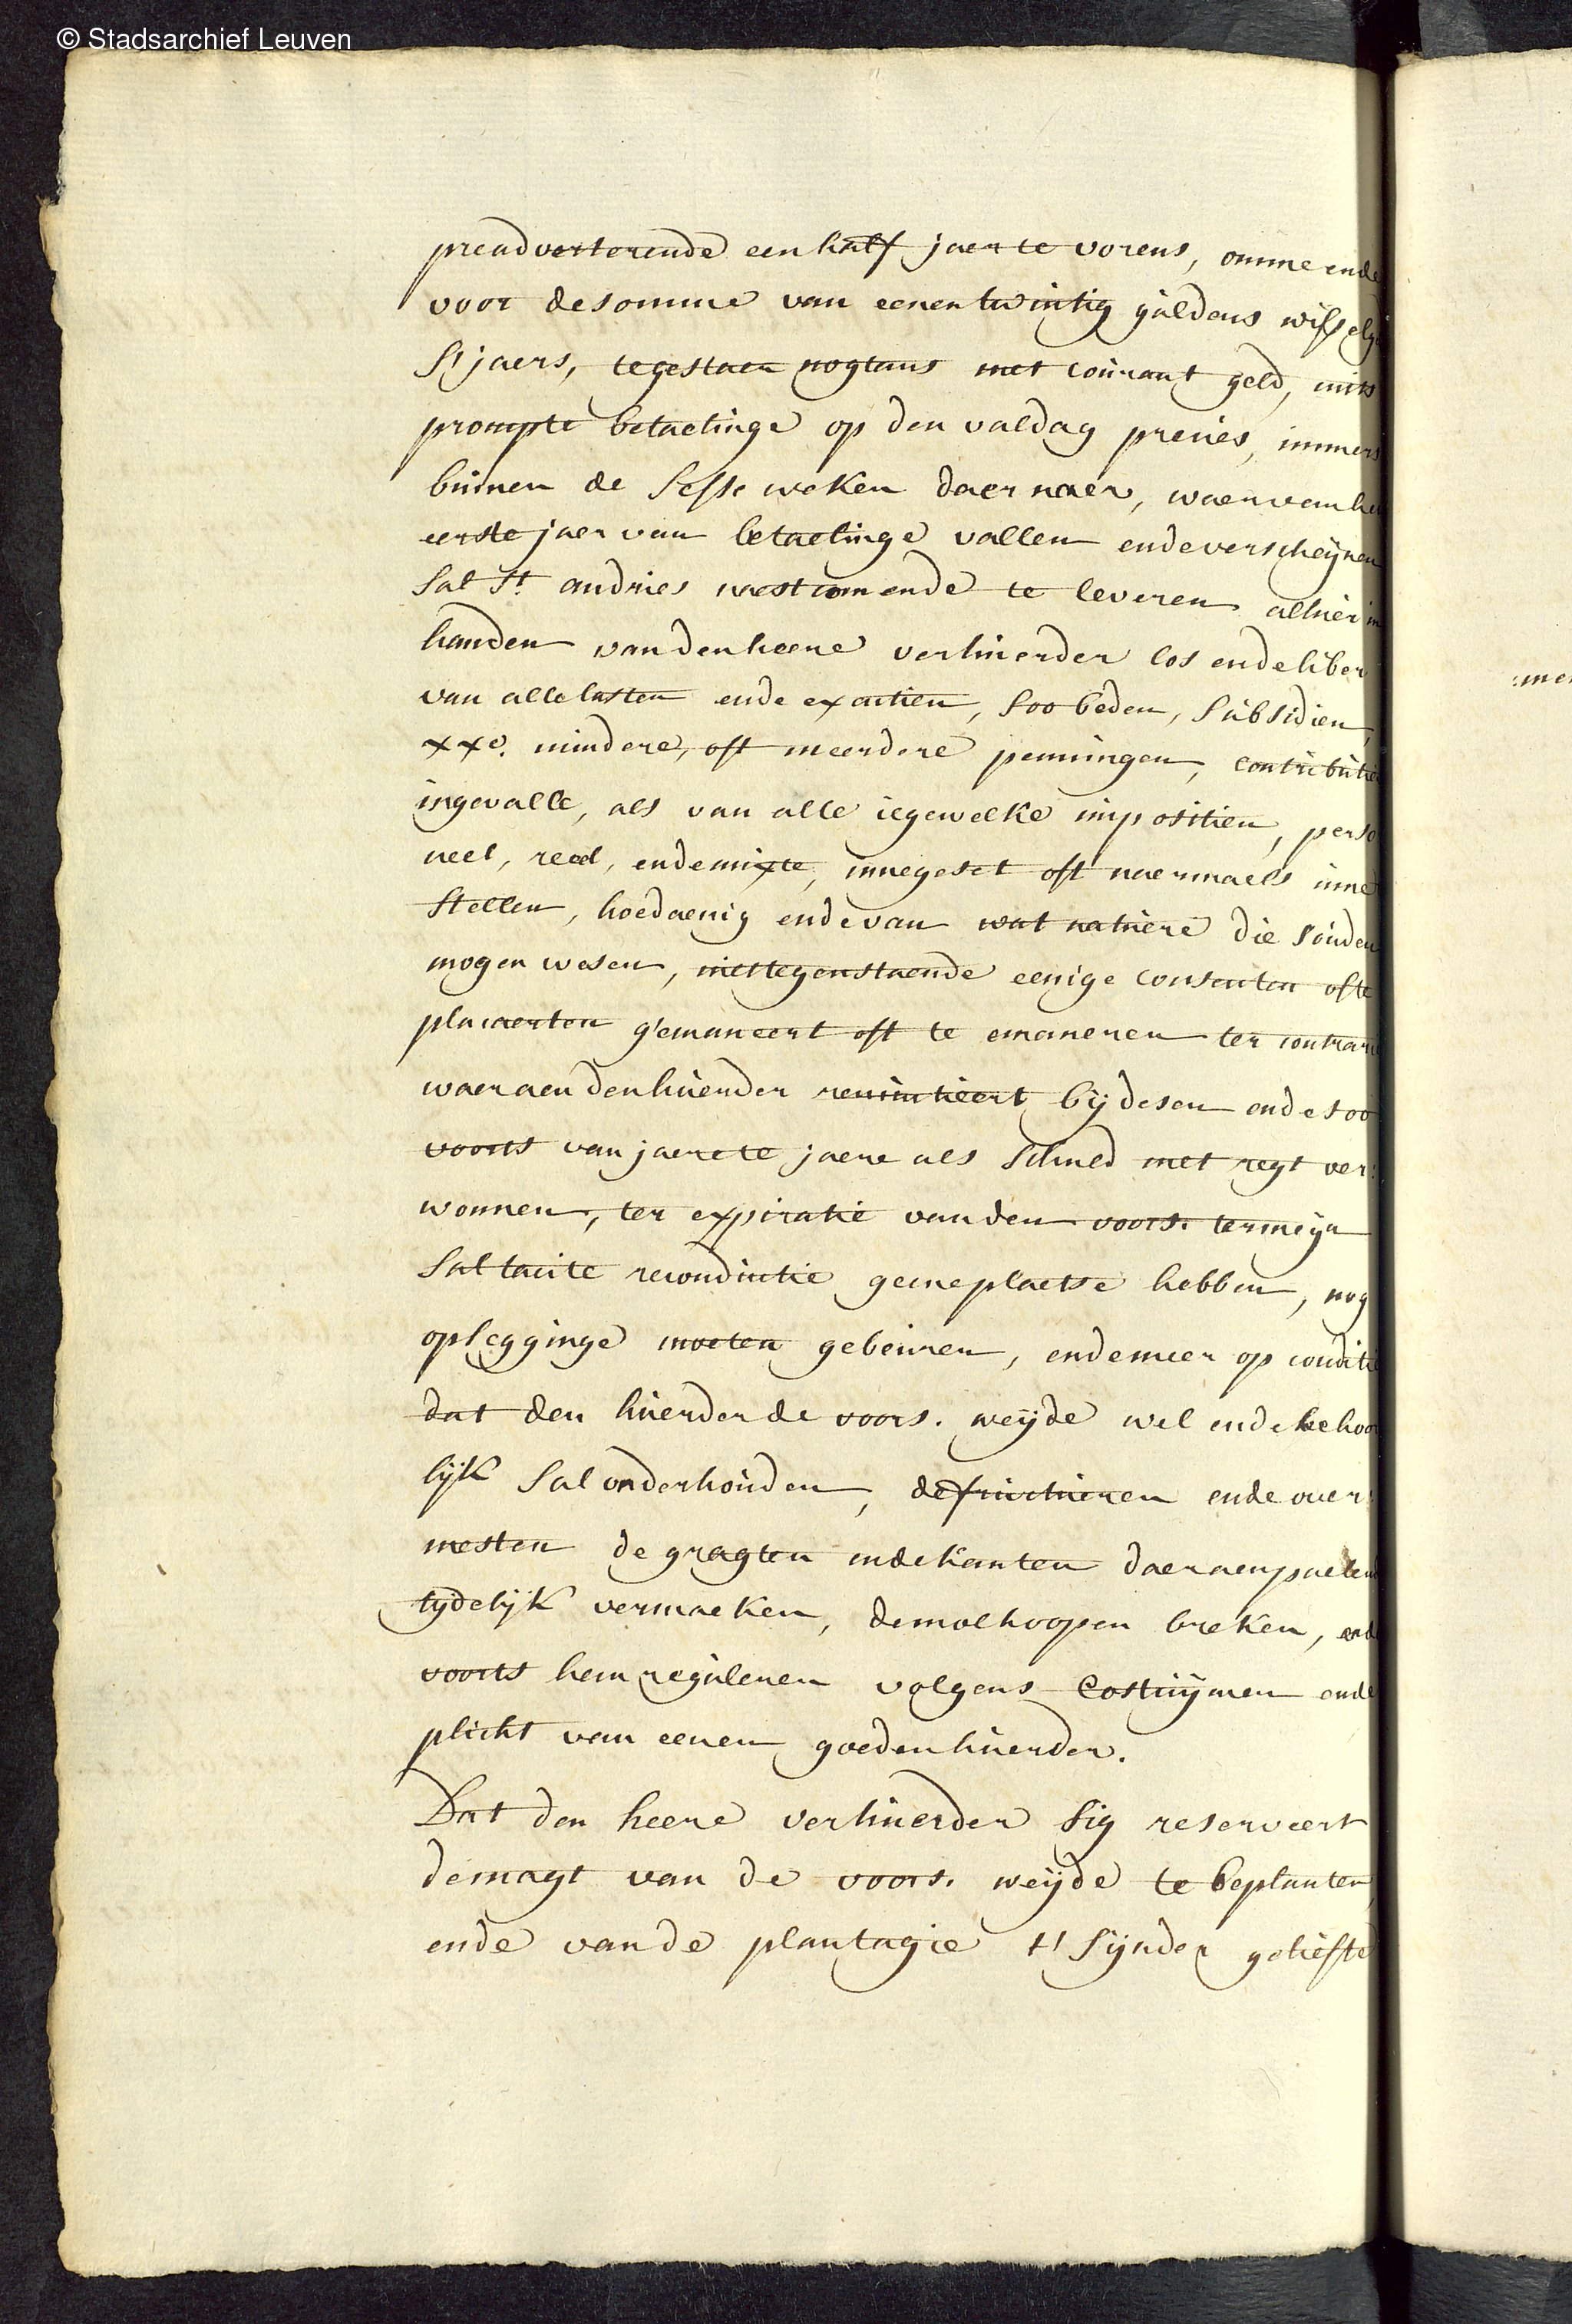 © Stadsarchief Leuven
preadverterende een half jaer te vorens, omme ende
voor de somme van eenentwintig guldens wisselg
s'jaers, te gestaen nogtans met courant geld, mits
prompte betaelinge op den valdag precies, immers
binnen de sesse weken daer naer, waer van he
eerste jaer van betaelinge vallen ende verscheijnen
sal St. andries naestcomende te leveren alhier in
handen van den heere verhuerder los ende liber
van alle lasten ende exactien, soo beden, subsidien,
xxe. mindere, oft meerdere penningen, contributie
ingevalle, als van alle iegewelke impositien, perso
neel, reeel, ende mixte, innegeset oft naermaels inne
stellen, hoedaenig ende van wat natuere die souden
mogen wesen, niettegenstaende eenige consenten ofte
placaerten g'emaneert oft te emaneren ter contrari
waer aen den huerder renuntieert bij desen ende soo
voorts van jaere te jaere als schuld met regt ver:
wonnen, ter expiratie van den voors. termeijn
sal tacite reconductie geene plaetse hebben, nog
opsegginge moeten gebeuren, ende meer op conditi
dat den huerder de voors. weijde wel ende behoo
lijk sal onderhouden, defructueren ende over:
mesten de gragten ende kanten daer aen paelend
tydelijk vermaeken, de molhoopen breken, end
voorts hem reguleren volgens Costuijmen ende
plicht van eenen goeden huerder.
Dat den heere verhuerder sig reserveert
de magt van de voors. weijde te beplanten,
ende van de plantagie t' sijnder geliefte
:me